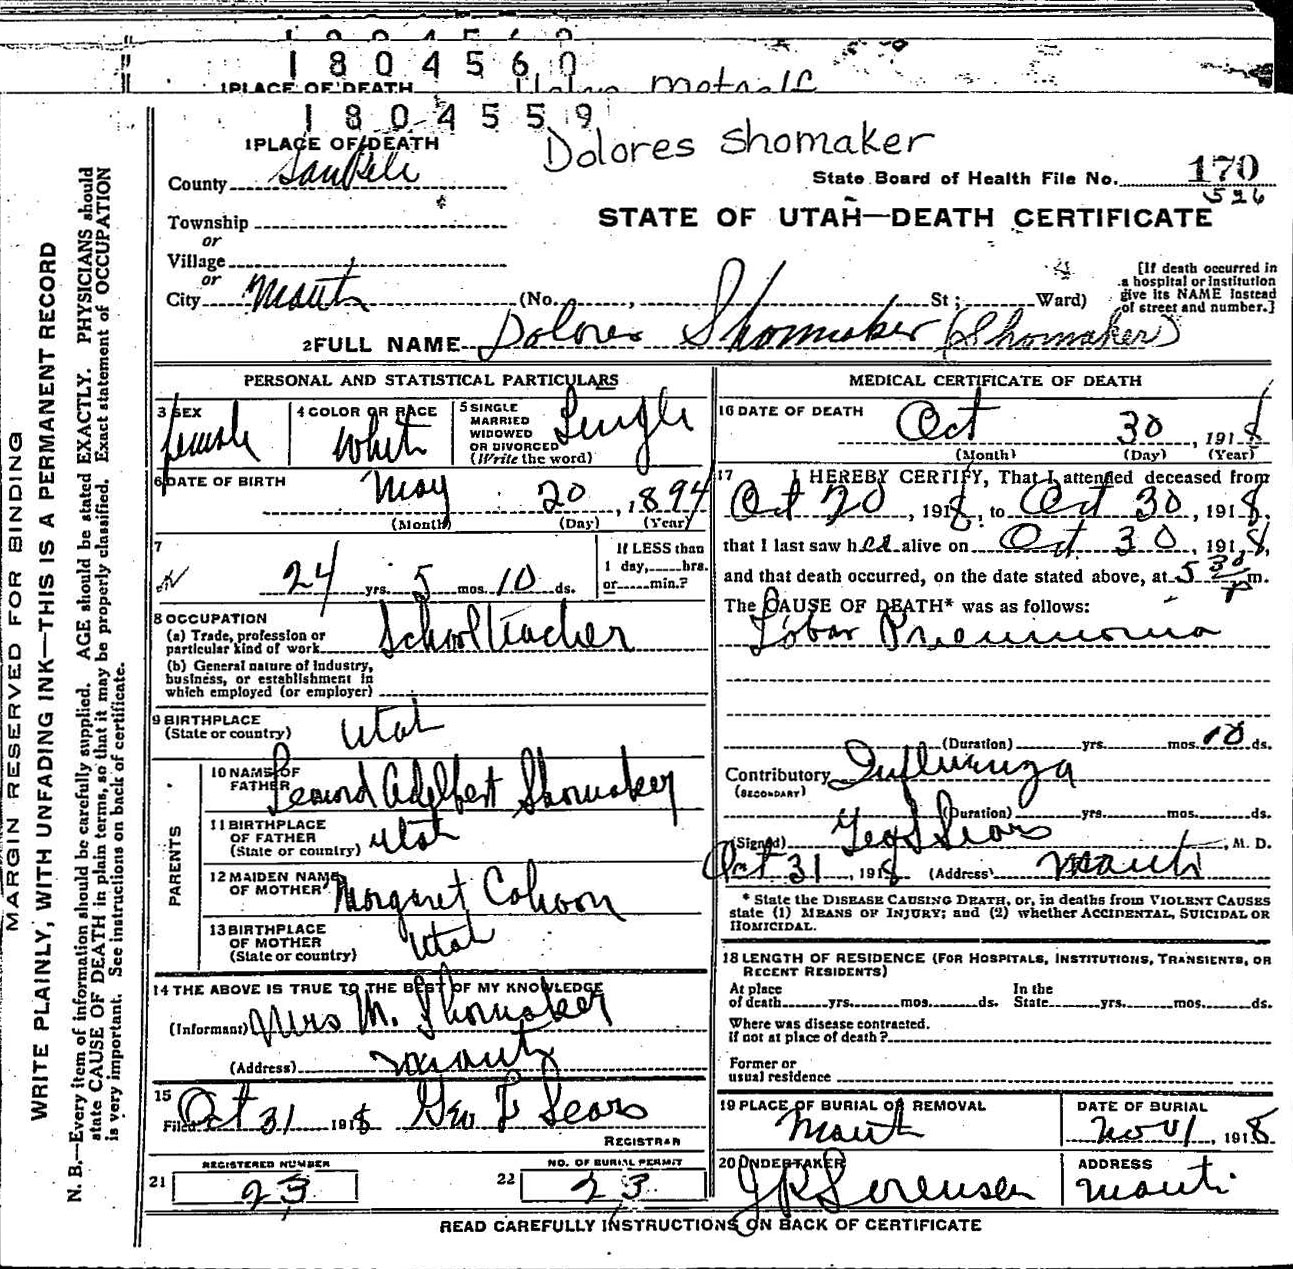 1804560
1 PLACE OF DEATH
1804559
Dolores Shomaker
1 PLACE OF DEATH
County SanPete
State Board of Health File No. 170
526
Township
STATE OF UTAH—DEATH CERTIFICATE
or
Village
or
City Manti (No. , St ; Ward)
[If death occurred in
a hospital or institution
give its NAME instead
of street and number.]
2 FULL NAME Dolores Shomaker (Shomaker)
PERSONAL AND STATISTICAL PARTICULARS
3 SEX
female
4 COLOR OR RACE
White
5 SINGLE
MARRIED
WIDOWED
OR DIVORCED
(Write the word)
Single
6 DATE OF BIRTH
May 20, 1894
(Month) (Day) (Year)
7
24 yrs. 5 mos. 10 ds.
If LESS than
1 day, hrs.
or min.?
8 OCCUPATION
(a) Trade, profession or
particular kind of work School teacher
(b) General nature of industry,
business, or establishment in
which employed (or employer)
9 BIRTHPLACE
(State or country) Utah
PARENTS
10 NAME OF
FATHER Adelbert Shomaker
11 BIRTHPLACE
OF FATHER
(State or country) Utah
12 MAIDEN NAME
OF MOTHER Margaret Cohoon
13 BIRTHPLACE
OF MOTHER
(State or country) Utah
14 THE ABOVE IS TRUE TO THE BEST OF MY KNOWLEDGE
(Informant) Mrs M. Shomaker
(Address) Manti
15
Filed Oct 31 1918 Geo F Sears
REGISTRAR
REGISTERED NUMBER
21 23
NO. OF BURIAL PERMIT
22 23
MEDICAL CERTIFICATE OF DEATH
16 DATE OF DEATH
Oct 30, 1918
(Month) (Day) (Year)
17 I HEREBY CERTIFY, That I attended deceased from
Oct 20, 1918, to Oct 30, 1918,
that I last saw her alive on Oct 30, 1918,
and that death occurred, on the date stated above, at 5 30 P m.
The CAUSE OF DEATH* was as follows:
Lobar Pneumonia
(Duration) yrs. mos. 10 ds.
Contributory Influenza
(SECONDARY)
(Duration) yrs. mos. ds.
(Signed) Geo Sears, M. D.
Oct 31, 1918 (Address) Manti
* State the DISEASE CAUSING DEATH, or, in deaths from VIOLENT CAUSES
state (1) MEANS OF INJURY; and (2) whether ACCIDENTAL, SUICIDAL OR
HOMICIDAL.
18 LENGTH OF RESIDENCE (FOR HOSPITALS, INSTITUTIONS, TRANSIENTS, OR
RECENT RESIDENTS)
At place
of death yrs. mos. ds.
In the
State yrs. mos. ds.
Where was disease contracted.
if not at place of death?
Former or
usual residence
19 PLACE OF BURIAL OR REMOVAL
Manti
DATE OF BURIAL
Nov 1, 1918
20 UNDERTAKER
J R Sorensen
ADDRESS
Manti
READ CAREFULLY INSTRUCTIONS ON BACK OF CERTIFICATE
MARGIN RESERVED FOR BINDING
WRITE PLAINLY, WITH UNFADING INK—THIS IS A PERMANENT RECORD
N. B.—Every item of information should be carefully supplied. AGE should be stated EXACTLY. PHYSICIANS should
state CAUSE OF DEATH in plain terms, so that it may be properly classified. Exact statement of OCCUPATION
is very important. See instructions on back of certificate.